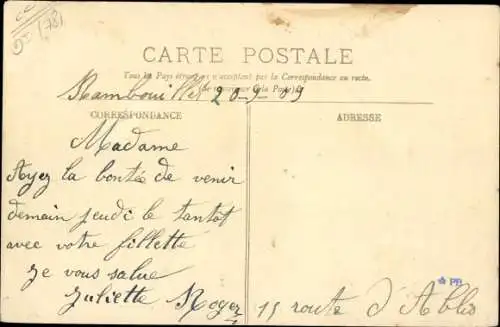 (78)
CARTE POSTALE
Tous les Pays étrangers n'acceptent pas la Correspondance au recto.
(Se renseigner à la Poste)
Rambouillet 20-9-09
CORRESPONDANCE
ADRESSE
Madame
Ayez la bonté de venir
demain jeudi le tantot
avec votre fillette
je vous salue
Juliette Royer 15 route d'Ablis
PB